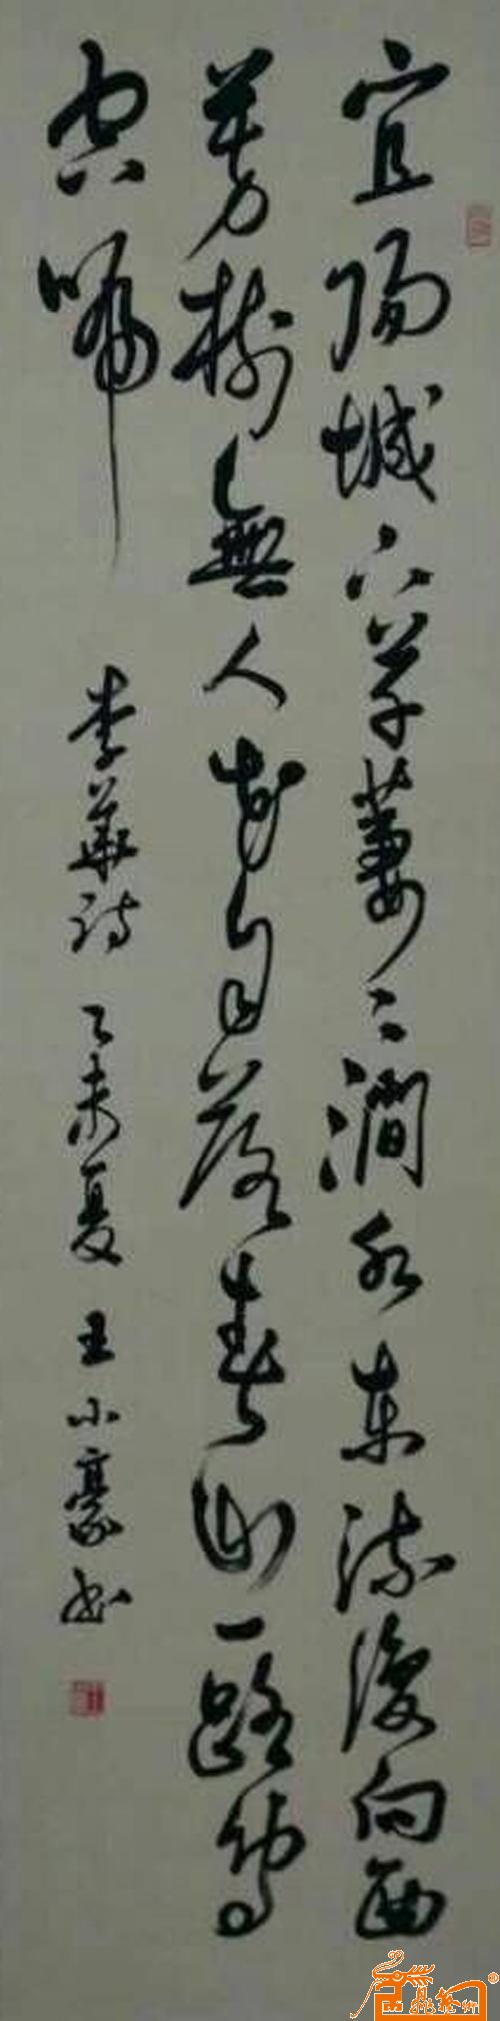 宜阳城下草萋々澗水东流復向西
芳树無人花自落春山一路鸟
空啼
李華诗 乙未夏 王小豪书